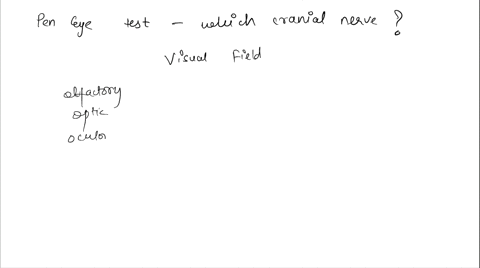 Pen Eye test - which cranial nerve ?
Visual Field
olfactory
optic
oculor